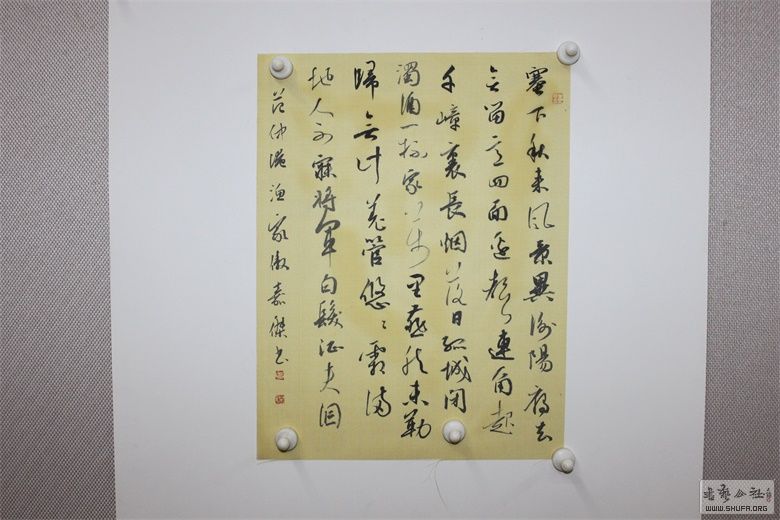 塞下秋来风景异衡阳雁去
无留意四面边声连角起
千嶂里长烟落日孤城闭
浊酒一杯家万里燕然未勒
归无计羌管悠悠霜满
地人不寐将军白发征夫泪
范仲淹渔家傲嘉杰书
书艺公社
WWW.SHUFA.ORG